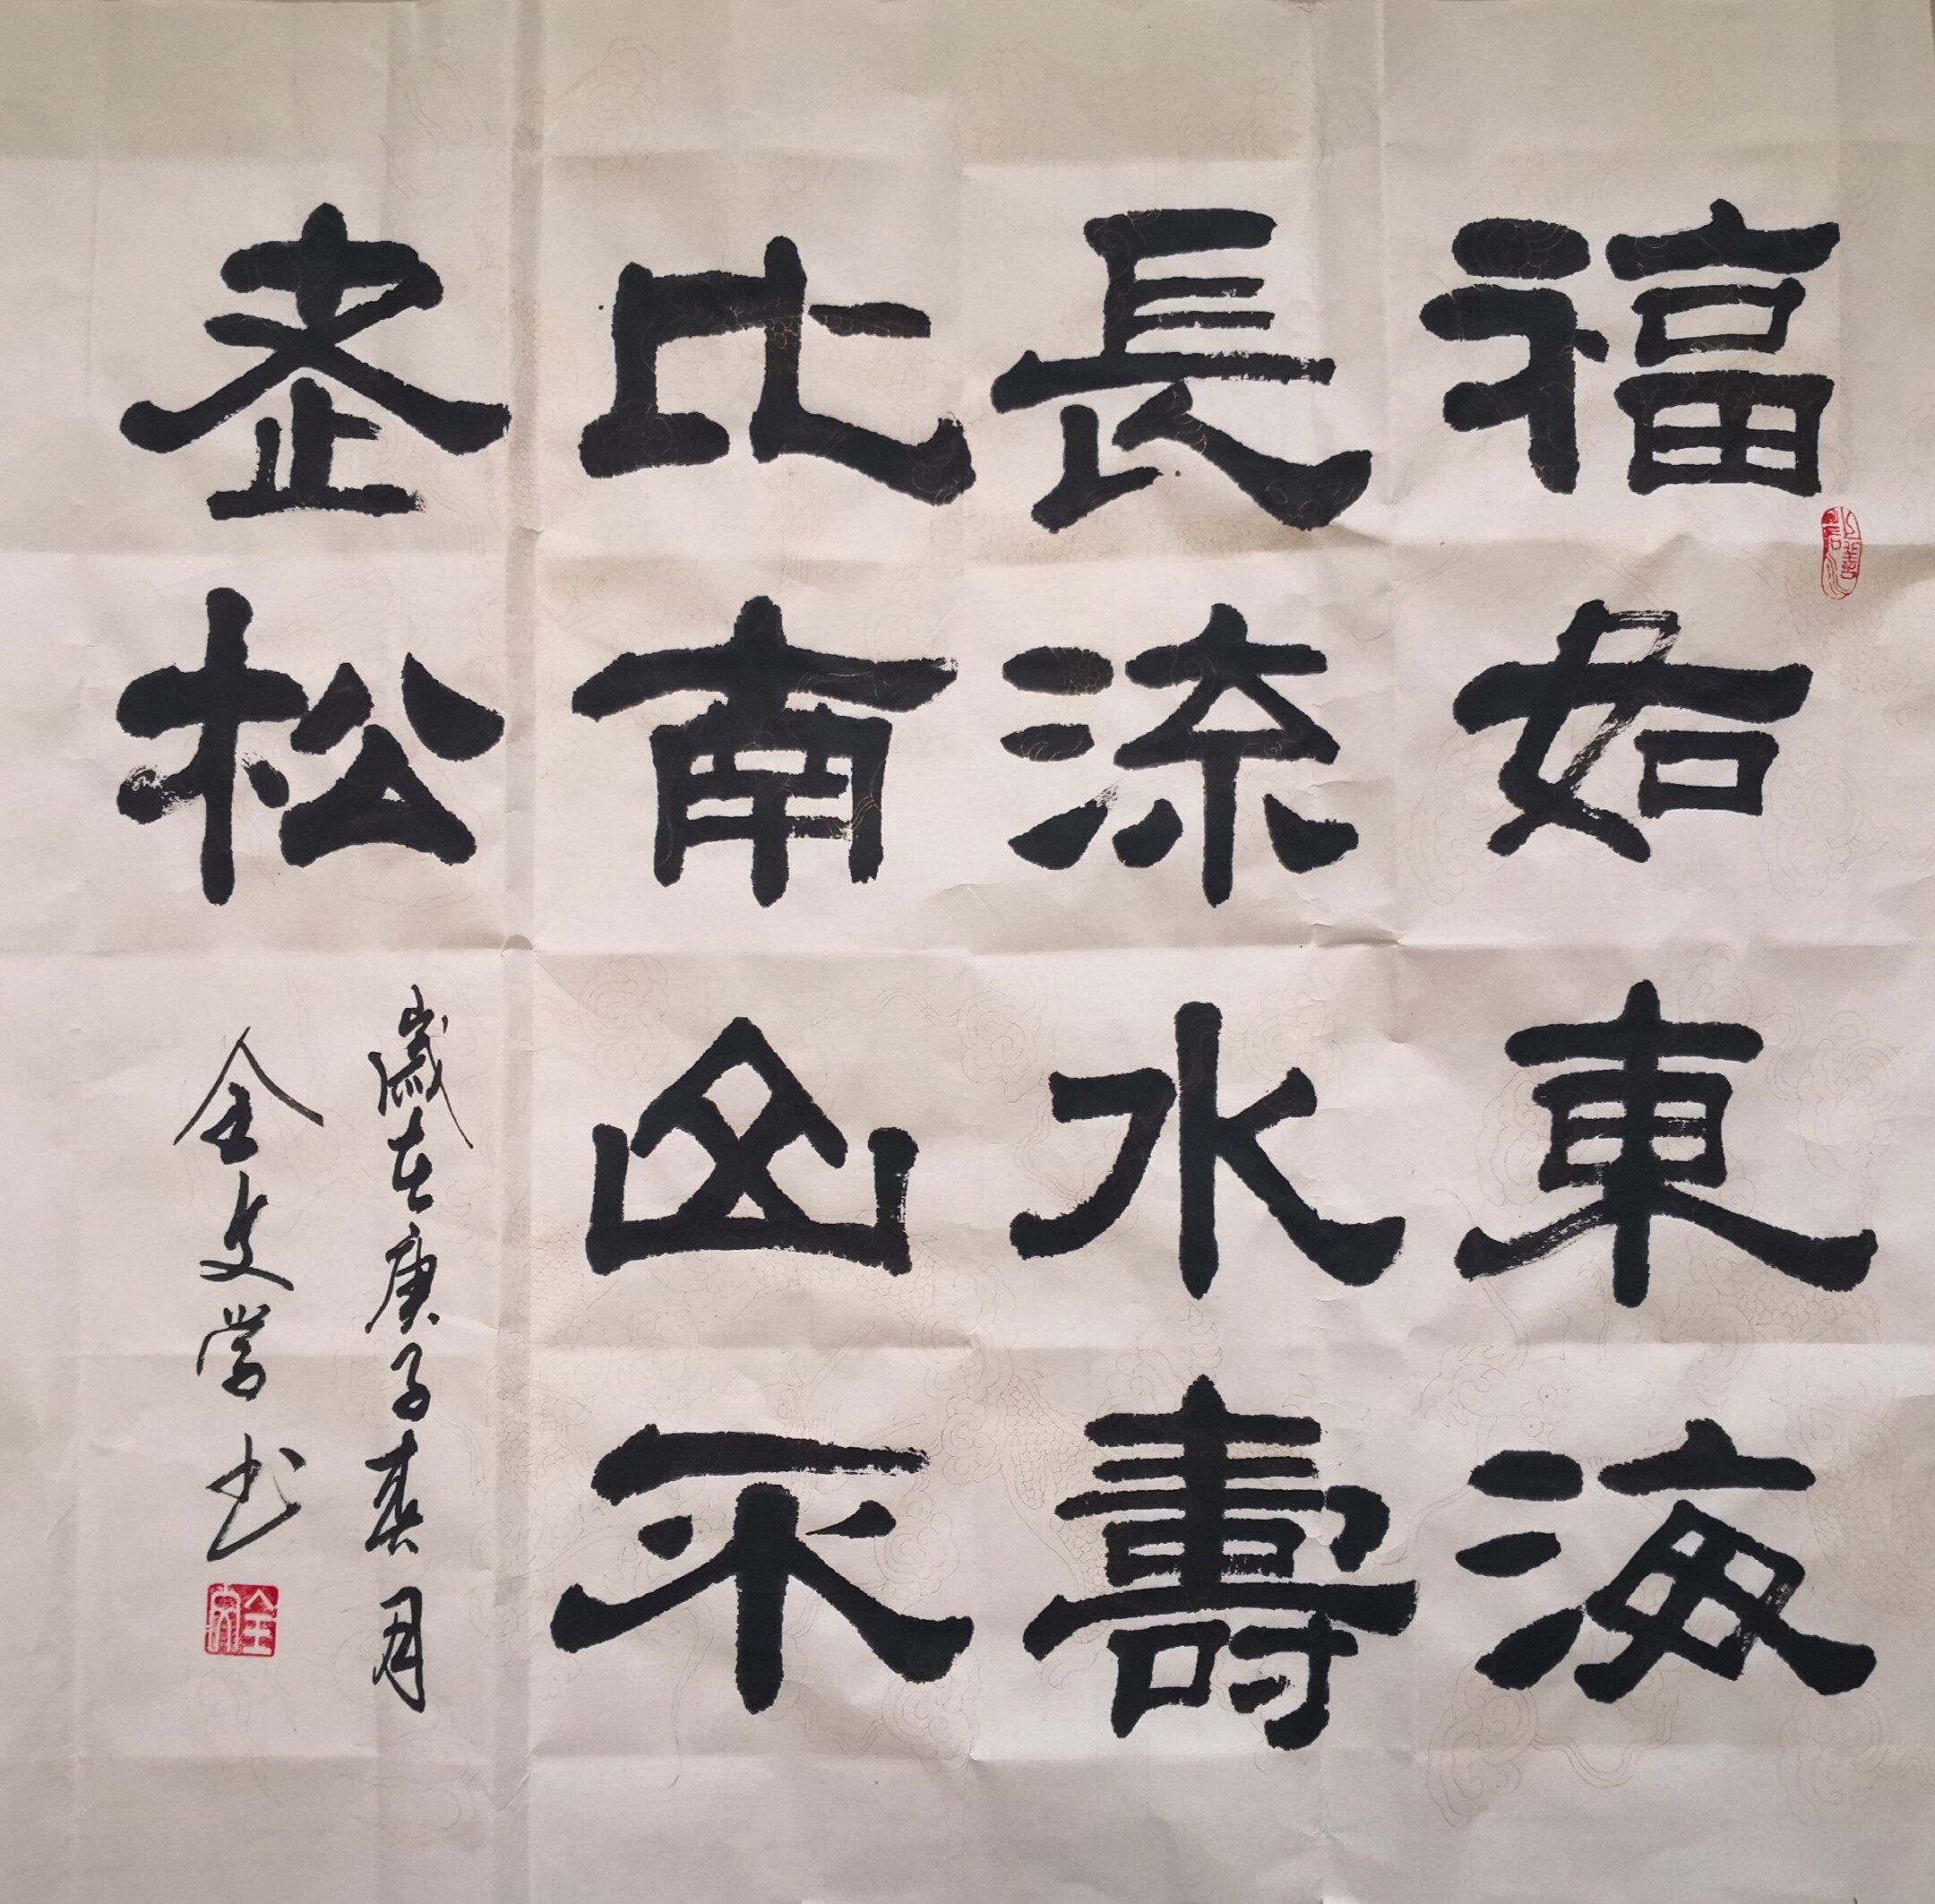 福如東海
長流水壽
比南山不
老松
歲在庚子春月
全文学书